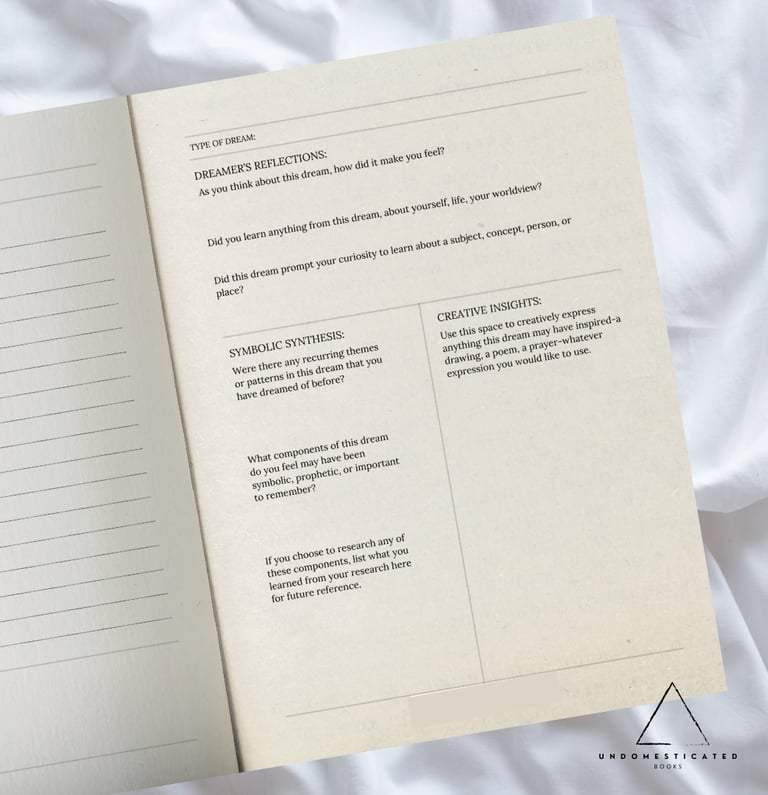 TYPE OF DREAM:
DREAMER'S REFLECTIONS:
As you think about this dream, how did it make you feel?
Did you learn anything from this dream, about yourself, life, your worldview?
Did this dream prompt your curiosity to learn about a subject, concept, person, or
place?
SYMBOLIC SYNTHESIS:
Were there any recurring themes
or patterns in this dream that you
have dreamed of before?
What components of this dream
do you feel may have been
symbolic, prophetic, or important
to remember?
If you choose to research any of
these components, list what you
learned from your research here
for future reference.
CREATIVE INSIGHTS:
Use this space to creatively express
anything this dream may have inspired-a
drawing, a poem, a prayer-whatever
expression you would like to use.
UNDOMESTICATED
BOOKS